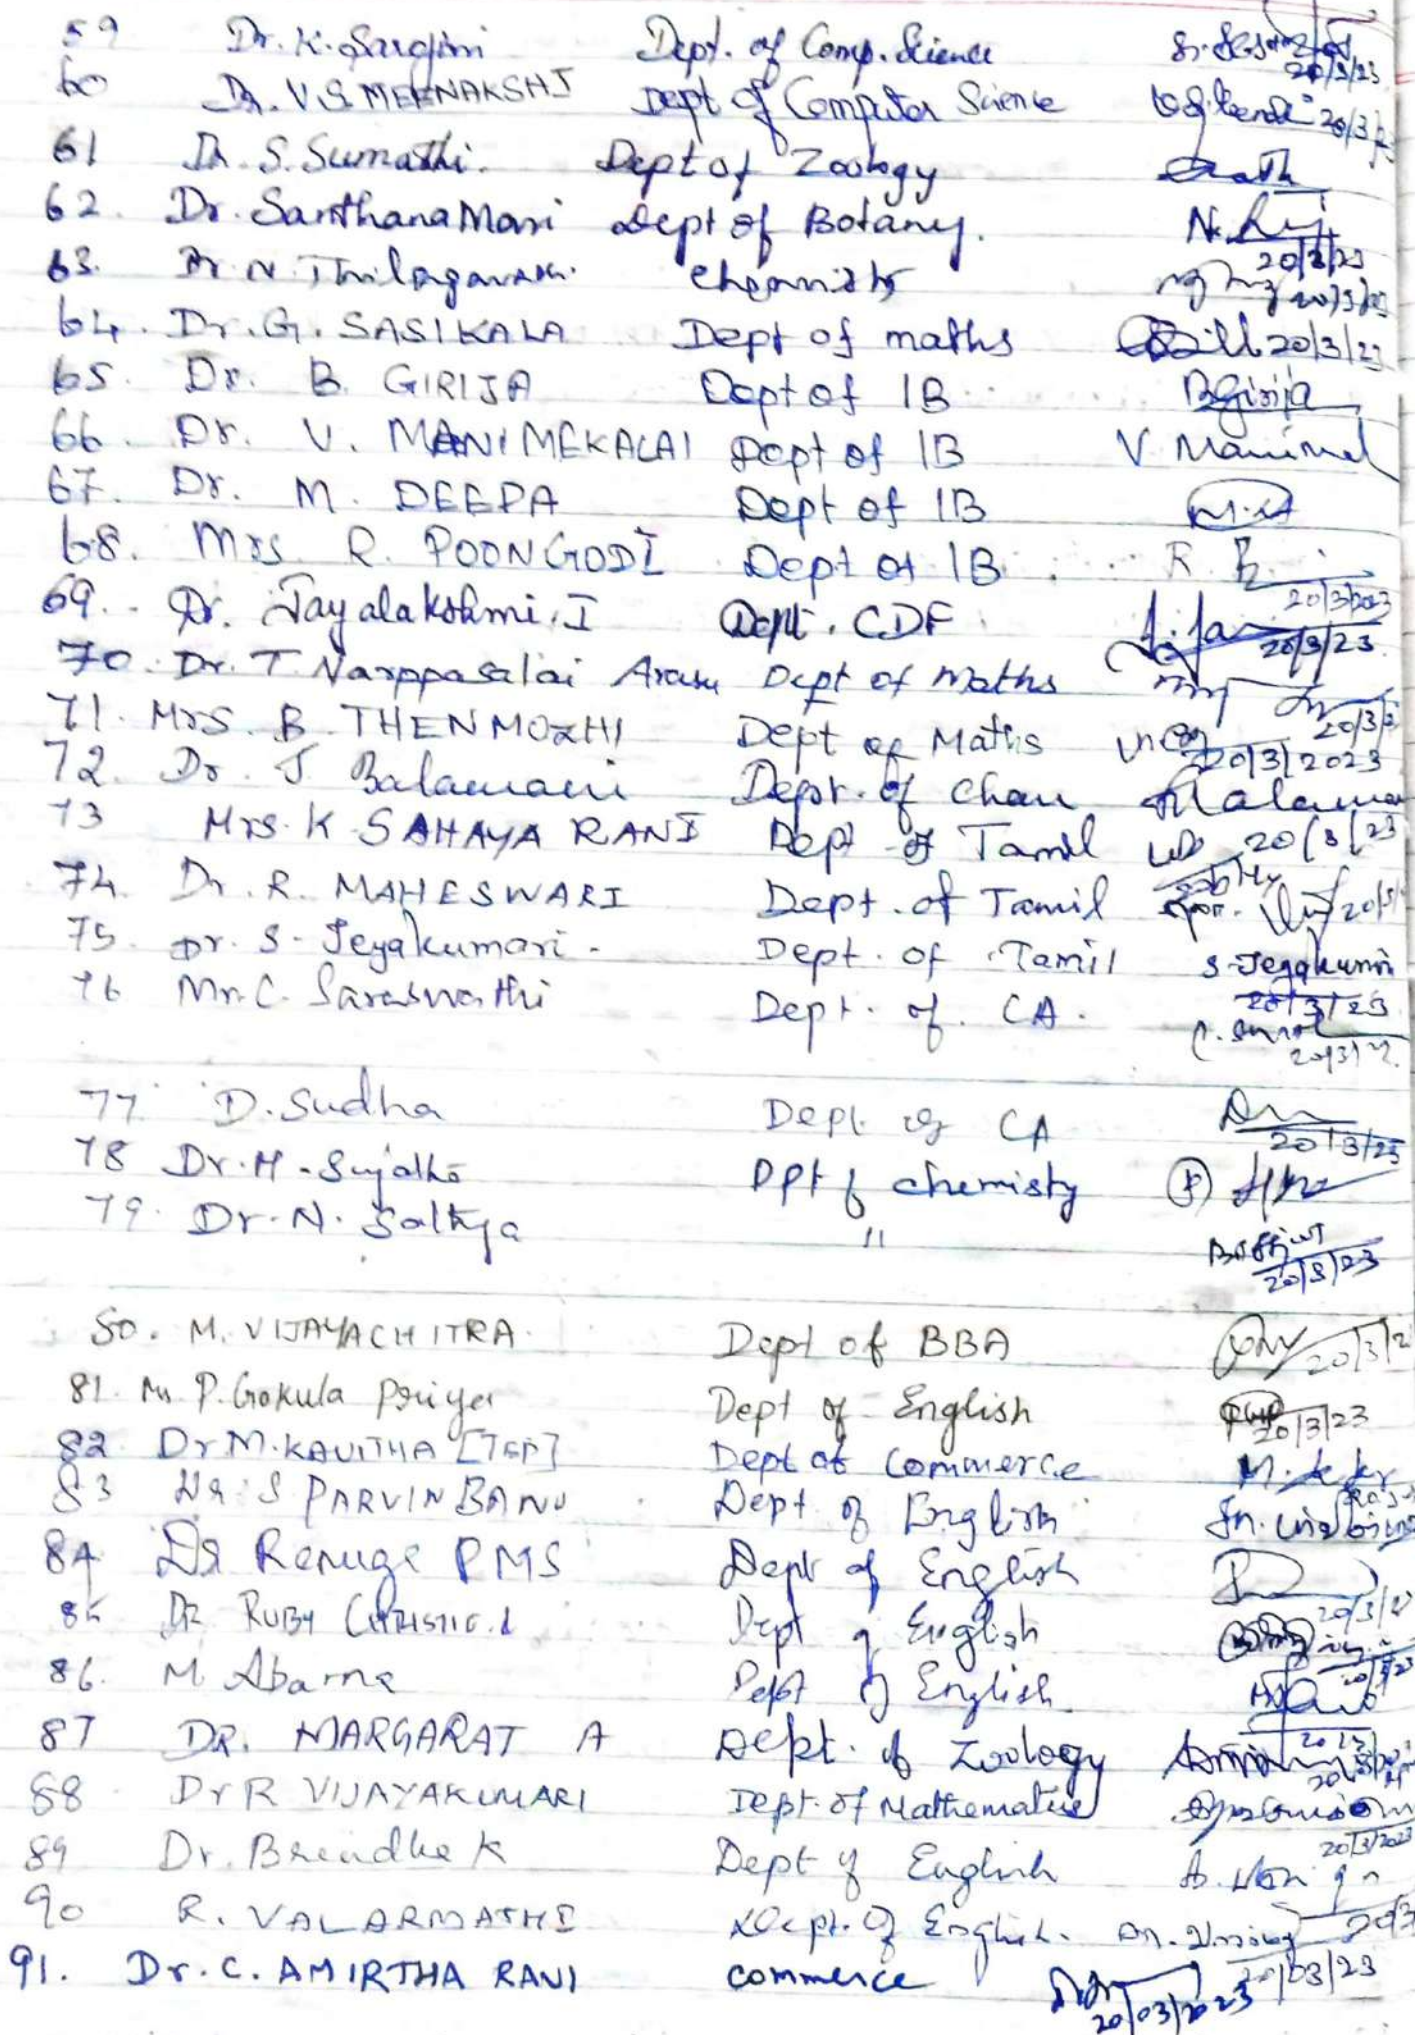 59 Dr. K. Sarojini Dept. of Comp. Science 20/3/23
60 Dr. V.S. MEENAKSHI Dept of Computer Science 20/3/23
61 Dr. S. Sumathi. Dept of Zoology
62. Dr. SanthanaMari Dept of Botany. 20/3/23
63. Dr. N. Thilagavathi. Chemistry 20/3/23
64. Dr. G. SASIKALA Dept of maths 20/3/23
65. Dr. B. GIRIJA Dept of IB B Girija
66. Dr. V. MANIMEKALAI Dept of IB V. Manimek
67. Dr. M. DEEPA Dept of IB
68. Mrs R. POONGODI Dept of IB R. 20/3/2023
69. Dr. Jayalakshmi. I Dept. CDF 20/3/23.
70. Dr. T. Narppasalai Arasu Dept of Maths 20/3/2
71. Mrs. B THENMOZHI Dept of Maths 20/3/2023
72. Dr. J. Balamani Dept. of Chem
73 Mrs. K SAHAYA RANI Dept of Tamil 20/3/23
74. Dr. R. MAHESWARI Dept. of Tamil
75. Dr. S. Jeyakumari. Dept. of Tamil S. Jeyakumari 20/3/23.
76 Mrs. C. Saraswathi Dept. of CA.
77. D. Sudha Dept of CA 20/3/23
78 Dr. M. Sujatha Dpt of chemistry
79. Dr. N. Sathya " 20/3/23
80. M. VIJAYACHITRA. Dept of BBA 20/3/2
81. Ms P. Gokula Priya Dept of English 20/3/23
82 Dr M. KAVITHA Dept of Commerce
83 S PARVIN BANU Dept. of English
84 Dr Renuga PMS Dept of English
85 DR RUBY CHRISTIE. Dept of English
86. M Abarna Dept of English
87 DR. MARGARAT A Dept. of Zoology
88 Dr R VIJAYAKUMARI Dept. of Mathematics 20/3/2023
89 Dr. Brindha K Dept of English
90 R. VALARMATHI Dept. of English. 20/03/23
91. Dr. C. AMIRTHA RANI commerce 20/03/2023